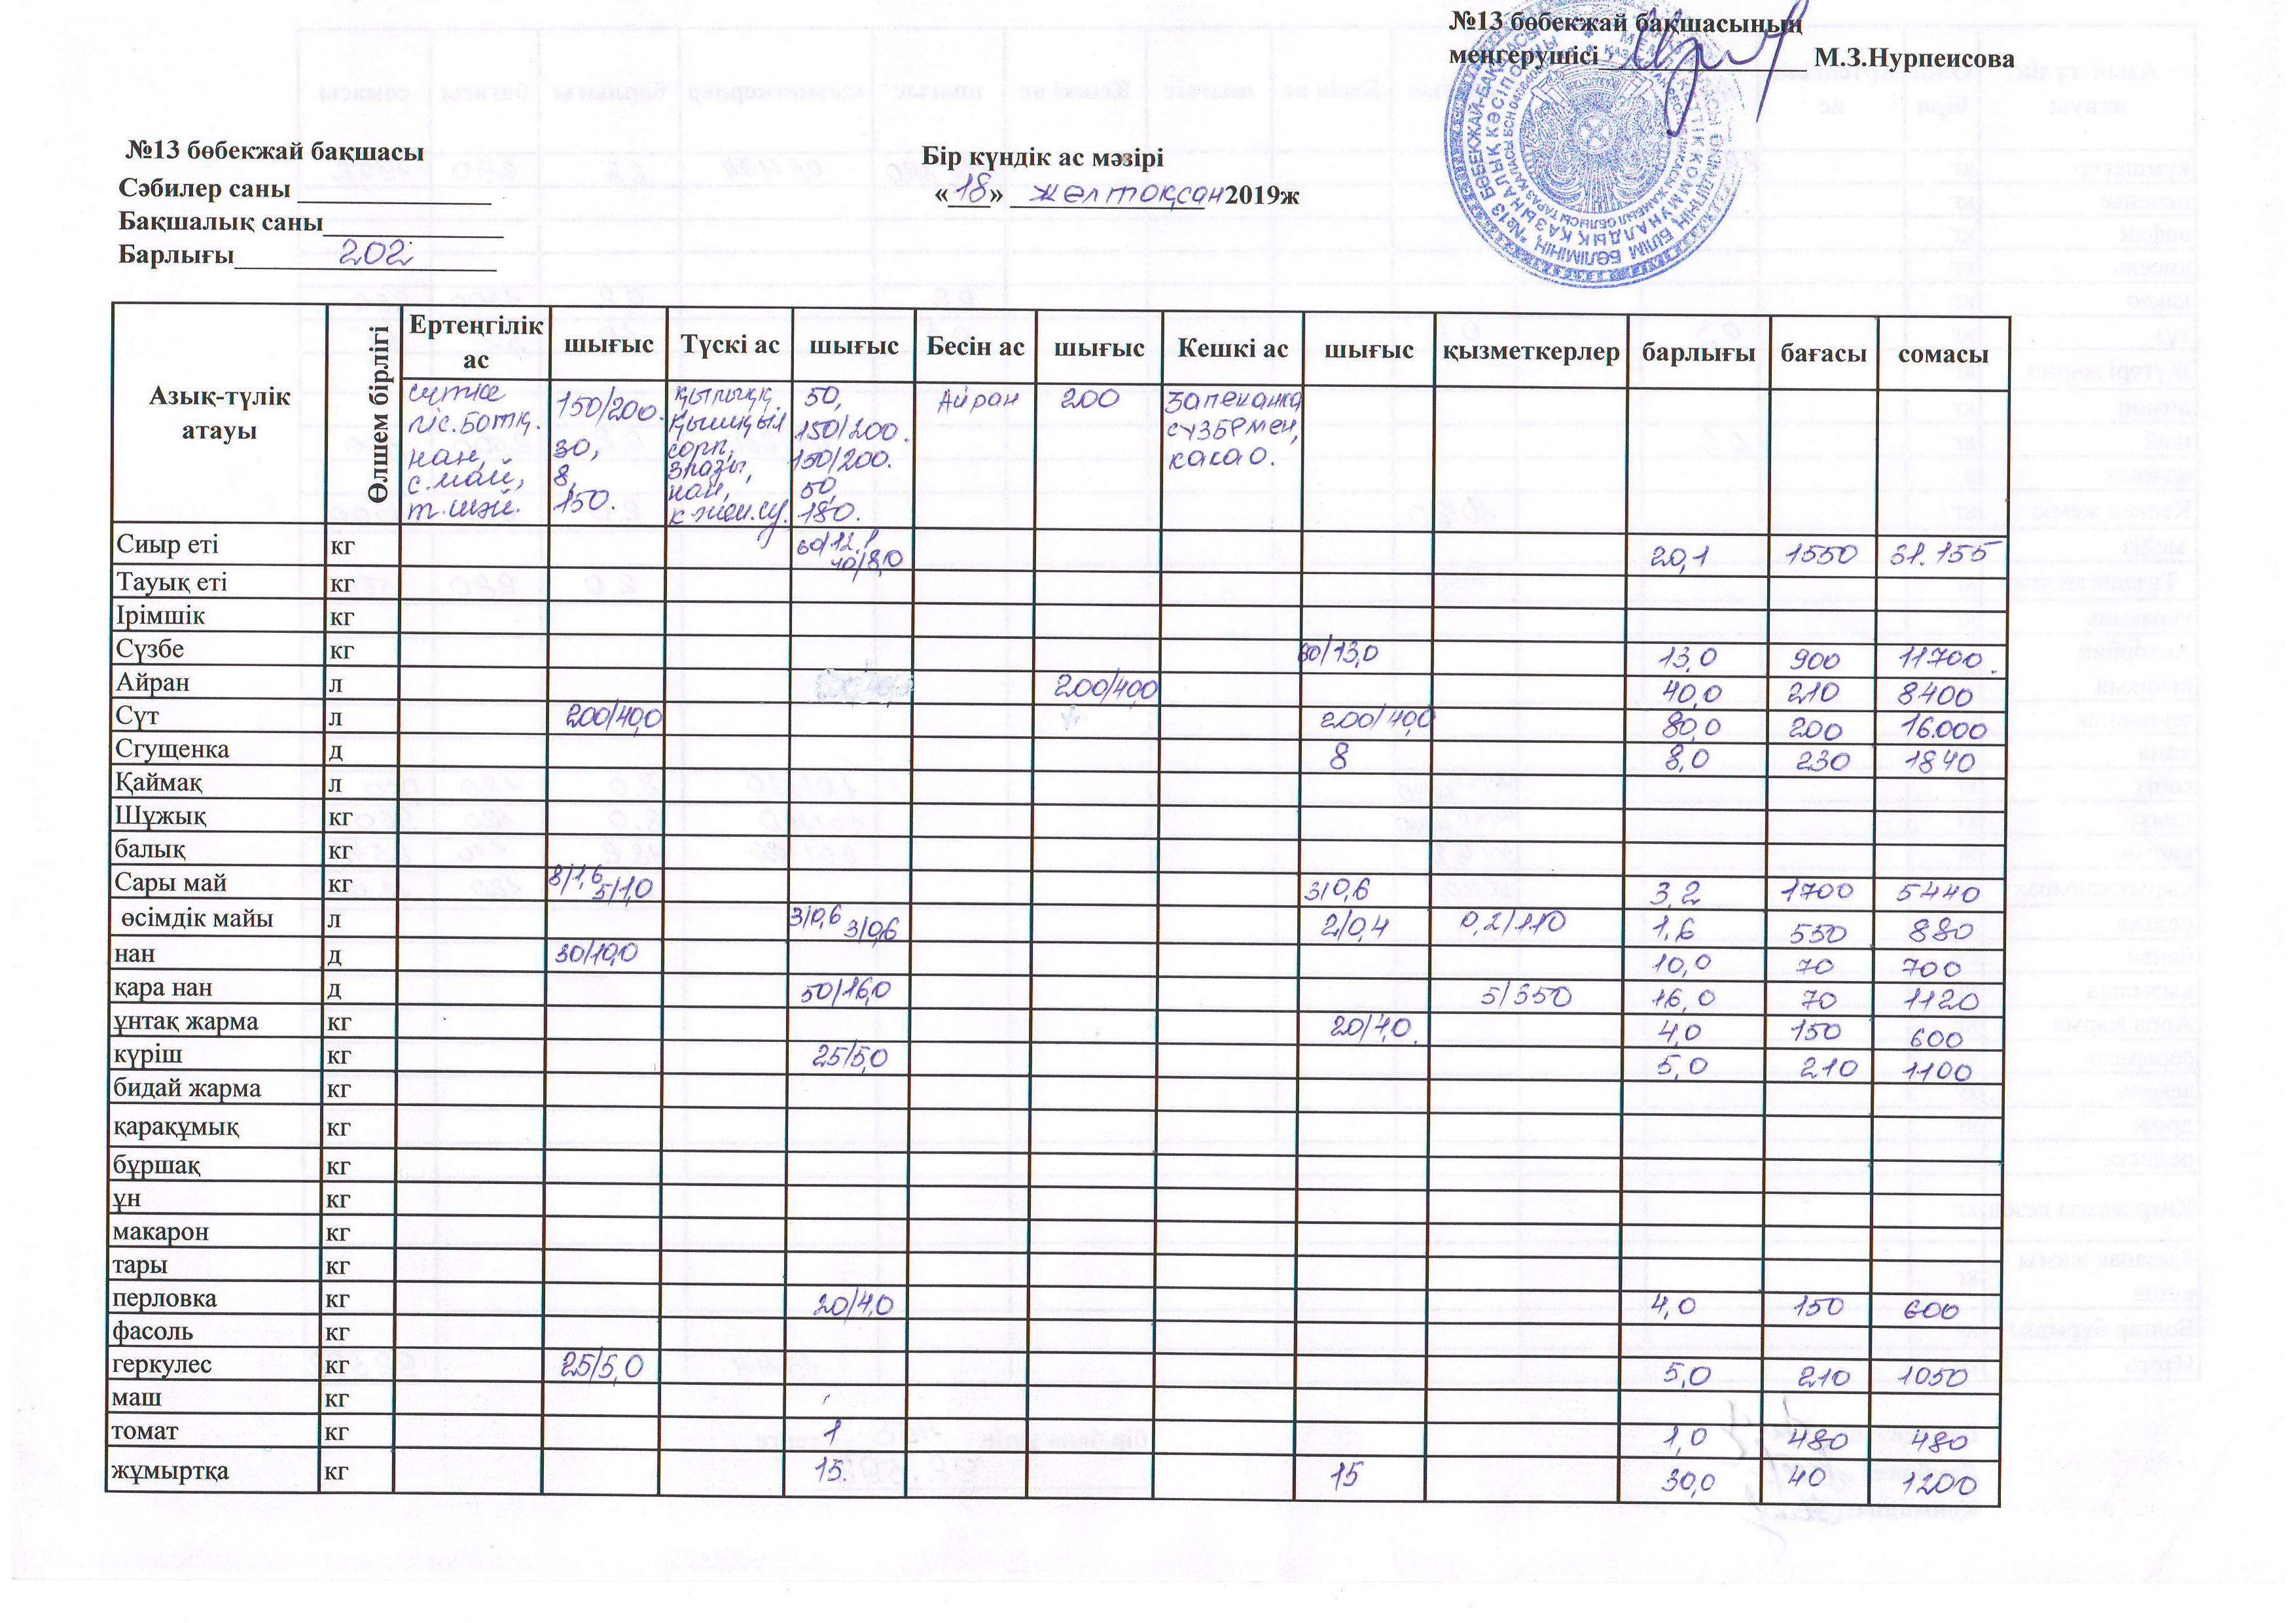 №13 бөбекжай бақшасының
меңгерушісі М.З.Нурпеисова
№13 бөбекжай бақшасы
Бір күндік ас мәзірі
Сәбилер саны
«18» желтоқсан 2019ж
Бақшалық саны
Барлығы 202
Азық-түлік атауы Өлшем бірлігі Ертеңгілік ас шығыс Түскі ас шығыс Бесін ас шығыс Кешкі ас шығыс қызметкерлер барлығы бағасы сомасы
сүтке 150/200. 50, Айран 200 Запеканка
г/с.ботқ. қышқыл 150/200. сүзбемен,
нан, 30, сорп, 150/200. какао.
с.май, 8, нан, 50,
т.шәй. 150. к-жем.су. 180.
Сиыр еті кг 60/12.1 40/8,0 20,1 1550 31.155
Тауық еті кг
Ірімшік кг
Сүзбе кг 60/13,0 13,0 900 11700.
Айран л 200/400 40,0 210 8400
Сүт л 200/40,0 200/40,0 80,0 200 16.000
Сгущенка д 8 8,0 230 1840
Қаймақ л
Шұжық кг
балық кг
Сары май кг 8/1,6 5/1,0 3/0,6 3,2 1700 5440
өсімдік майы л 3/0,6 3/0,6 2/0,4 0,2/110 1,6 550 880
нан д 30/10,0 10,0 70 700
қара нан д 50/16,0 5/350 16,0 70 1120
ұнтақ жарма кг 20/4,0. 4,0 150 600
күріш кг 25/5,0 5,0 210 1100
бидай жарма кг
қарақұмық кг
бұршақ кг
ұн кг
макарон кг
тары кг
перловка кг 20/4,0 4,0 150 600
фасоль кг
геркулес кг 25/5,0 5,0 210 1050
маш кг
томат кг 1 1,0 480 480
жұмыртқа кг 15. 15 30,0 40 1200